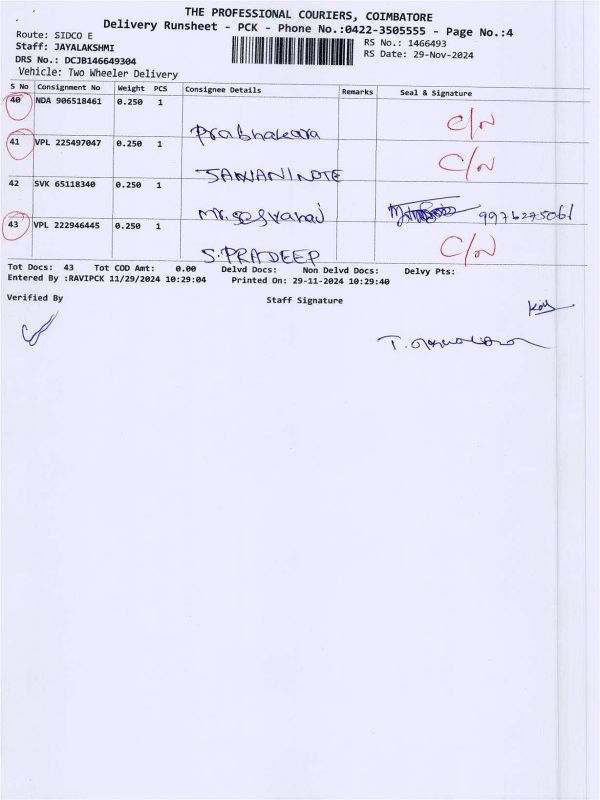 THE PROFESSIONAL COURIERS, COIMBATORE
Delivery Runsheet - PCK - Phone No.:0422-3505555 - Page No.:4
Route: SIDCO E
RS No.: 1466493
Staff: JAYALAKSHMI
RS Date: 29-Nov-2024
DRS No.: DCJB146649304
Vehicle: Two Wheeler Delivery
S No Consignment No Weight PCS Consignee Details Remarks Seal & Signature
40 NDA 906518461 0.250 1
Prabhakara C/N
41 VPL 225497047 0.250 1 C/N
42 SVK 65118340 0.250 1
Mr. 9976275061
43 VPL 222946445 0.250 1 C/N
S.PRADEEP
Tot Docs: 43 Tot COD Amt: 0.00 Delvd Docs: Non Delvd Docs: Delvy Pts:
Entered By :RAVIPCK 11/29/2024 10:29:04 Printed On: 29-11-2024 10:29:40
Verified By Staff Signature